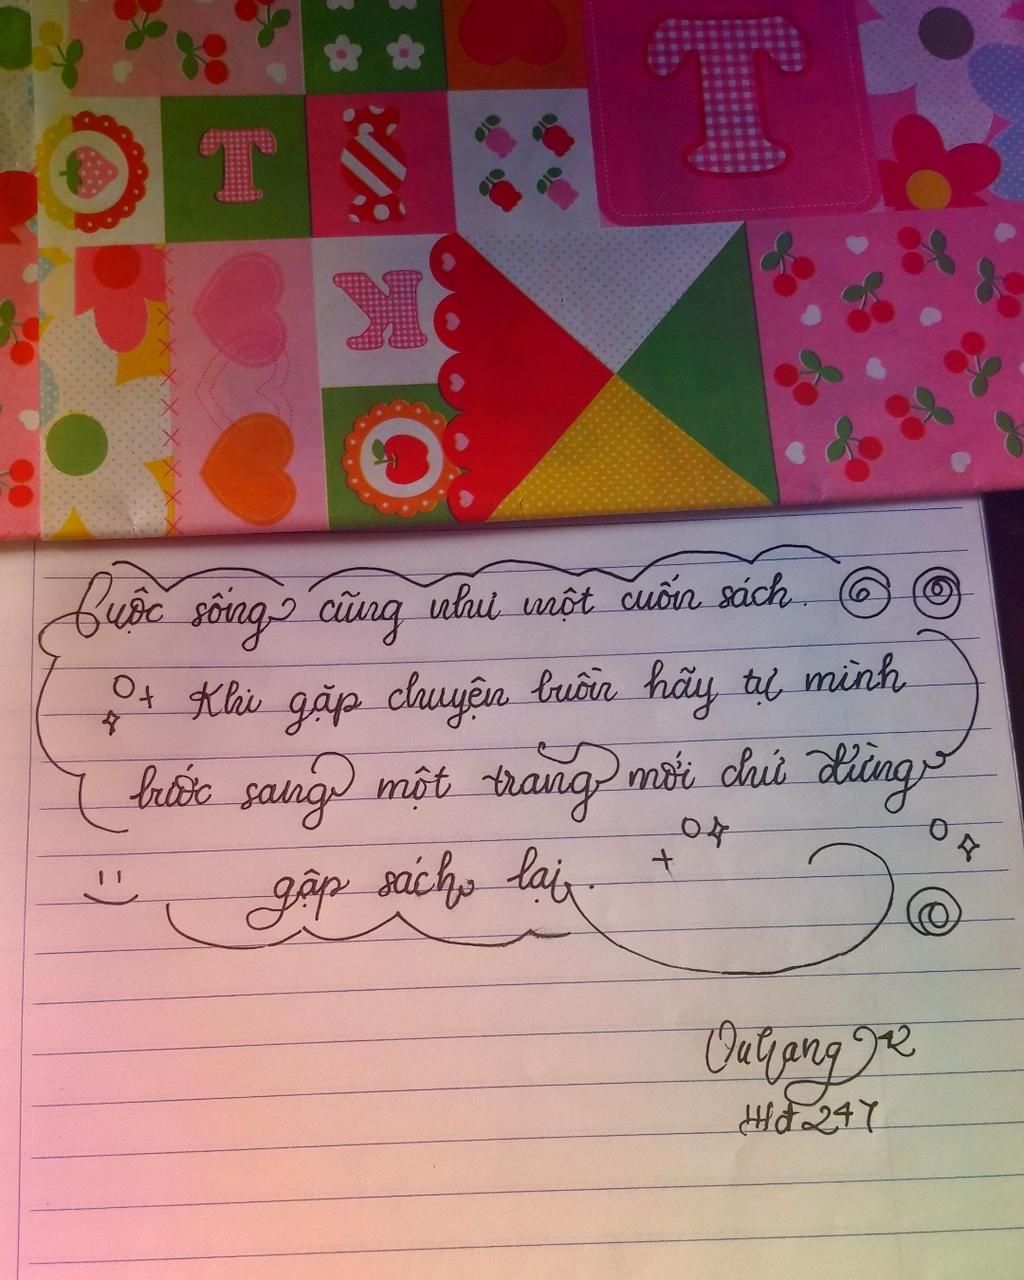 T
T
K
Cuộc sống cũng như một cuốn sách.
Khi gặp chuyện buồn hãy tự mình
bước sang một trang mới chứ đừng
gập sách lại.
247